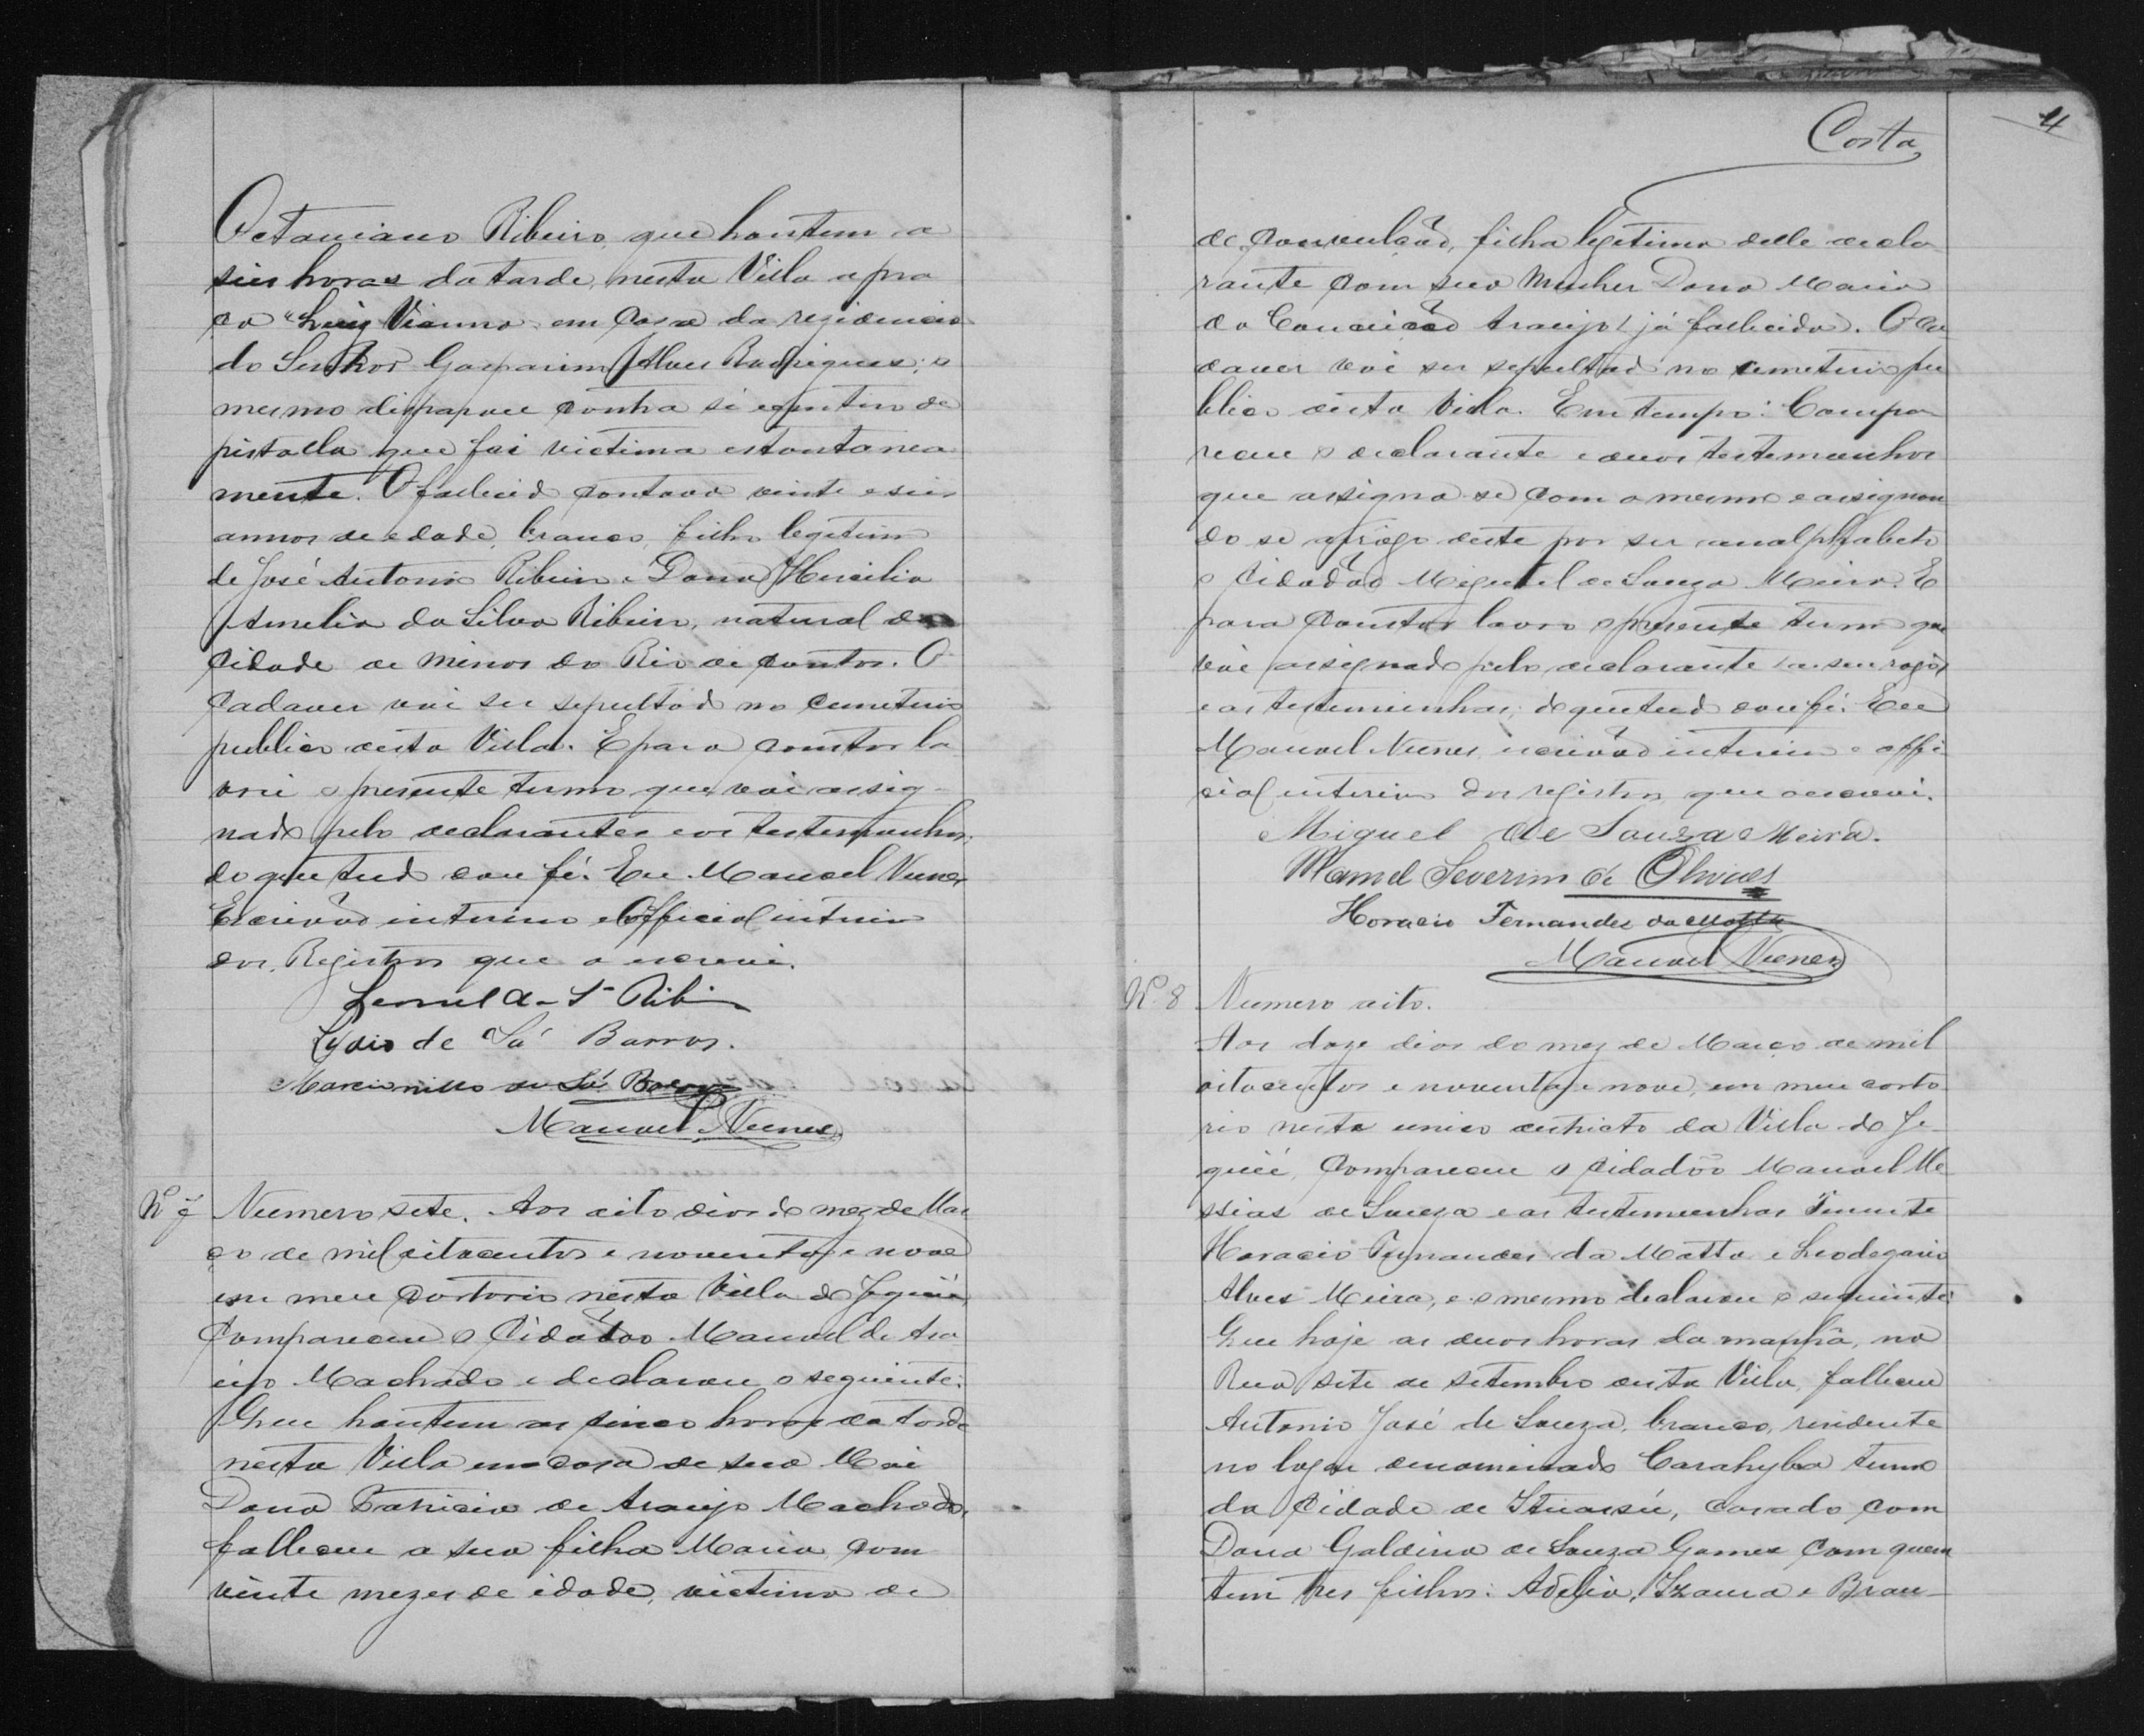 Octaviano Ribeiro, que hontem a
seis horas da tarde, nesta Villa a pra
ça "Luiz Vianna em casa da rezidencia
do Senhor Gasparim Alves Rodrigues; o
mesmo disparou contra si um tiro de
pistolla que foi victima estantanea
mente. O fallecido contava vinte e seis
annos de edade, branco, filho legitimo
de José Antonio Ribeiro e Dona Hercilia
Amelia da Silva Ribeiro, natural da
Cidade de Minas do Rio de Contas. O
Cadaver vai ser sepultado no Cemeterio
publico desta Villa. E para constar la
vrei o presente termo que vai assig-
nado pelo declarantes e os testemunhos;
do que tudo dou fé. Eu Manoel Nunes
Escrivão interino e Official interino
dos Registros que o escrevi.
Lydio de Sá Barros.
Marcionillo de Sá Barros
Manoel Nunes
Nº 7 Numero sete. Aos oito dias do mez de Mar
ço de mil oitocentos e noventa e nove
em meu Cartorio nesta Villa de Jequié,
Compareceu o Cidadão Manoel de Ara
ujo Machado e declarou o seguinte:
Que hontem as cinco horas da tarde
nesta Villa em casa de sua Mai
Dona Patricia de Araujo Machado,
falleceu a sua filha Maria, com
vinte mezes de idade, victima de
4
Costa
de convulção, filha legitima delle decla
rante com sua Mulher Dona Maria
da Conceição Araujo já fallecida. O Ca
daver vai ser sepultado no cemeterio pu
blico desta Villa. Em tempo: Compa
receu o declarante e duas testemunhas
que assigna-se com o mesmo e assignan
do se a rogo deste por ser analphabeto
o Cidadão Miguel de Souza Meira. E
para constar lavro o presente termo que
vai assignado pelo declarante a seu rogo
e as testemunhas; do que tudo dou fé. Eu
Manoel Nunes escrivão interino e offi
cial interino dos registros que o escrevi.
Miguel de Souza Meira.
Manoel Severim de Oliveira
Horacio Fernandes da Motta
Manoel Nunes
Nº 8 Numero oito.
Aos doze dias do mez de Março de mil
oitocentos e noventa e nove, em meu carto
rio nesta unico districto da Villa de Je-
quié, Compareceu o Cidadão Manoel Me
ssias de Souza e as testemunhas Tenente
Horacio Fernandes da Motta e Leodegario
Alves Meira, e o mesmo declarou o seguinte:
Que hoje as duas horas da manhã, na
Rua sete de setembro desta Villa, falleceu
Antonio José de Souza, branco, rezidente
no logar denominado Carahyba termo
da Cidade de Ituassú, casado com
Dona Galdina de Souza Gomes com quem
tem tres filhos: Adelia, Izaura e Bran-